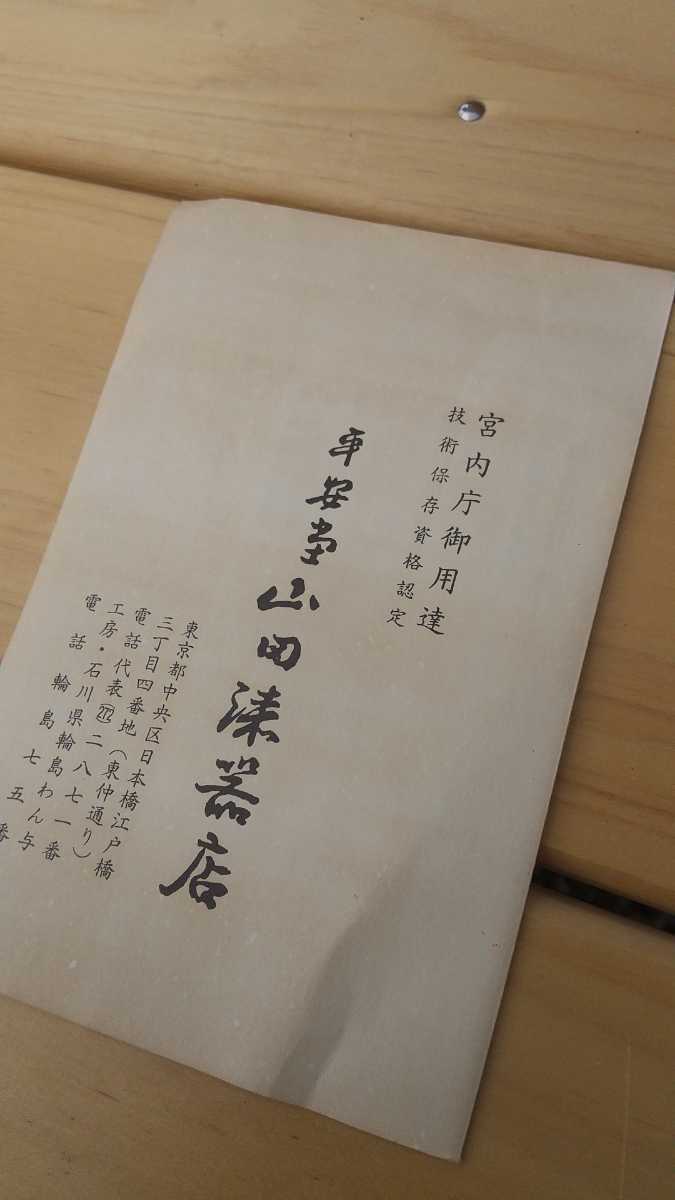 宮内庁御用達
技術保存資格認定
平安堂山田漆器店
東京都中央区日本橋江戸橋
三丁目四番地(東仲通り)
電話代表272二八七一番
工房・石川県輪島わん与
電話輪島七五番